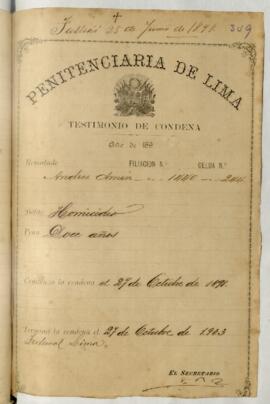 25 de Junio de 1898
309
PENITENCIARIA DE LIMA
TESTIMONIO DE CONDENA
Año de 189
Rematado FILIACION N.º CELDA N.º
Andres 1440 244
Delito Homicidio
Pena Doce años
Comienza la condena el 27 de Octubre de 1891
Termina la condena el 27 de Octubre de 1903
Tribunal Lima.
EL SECRETARIO